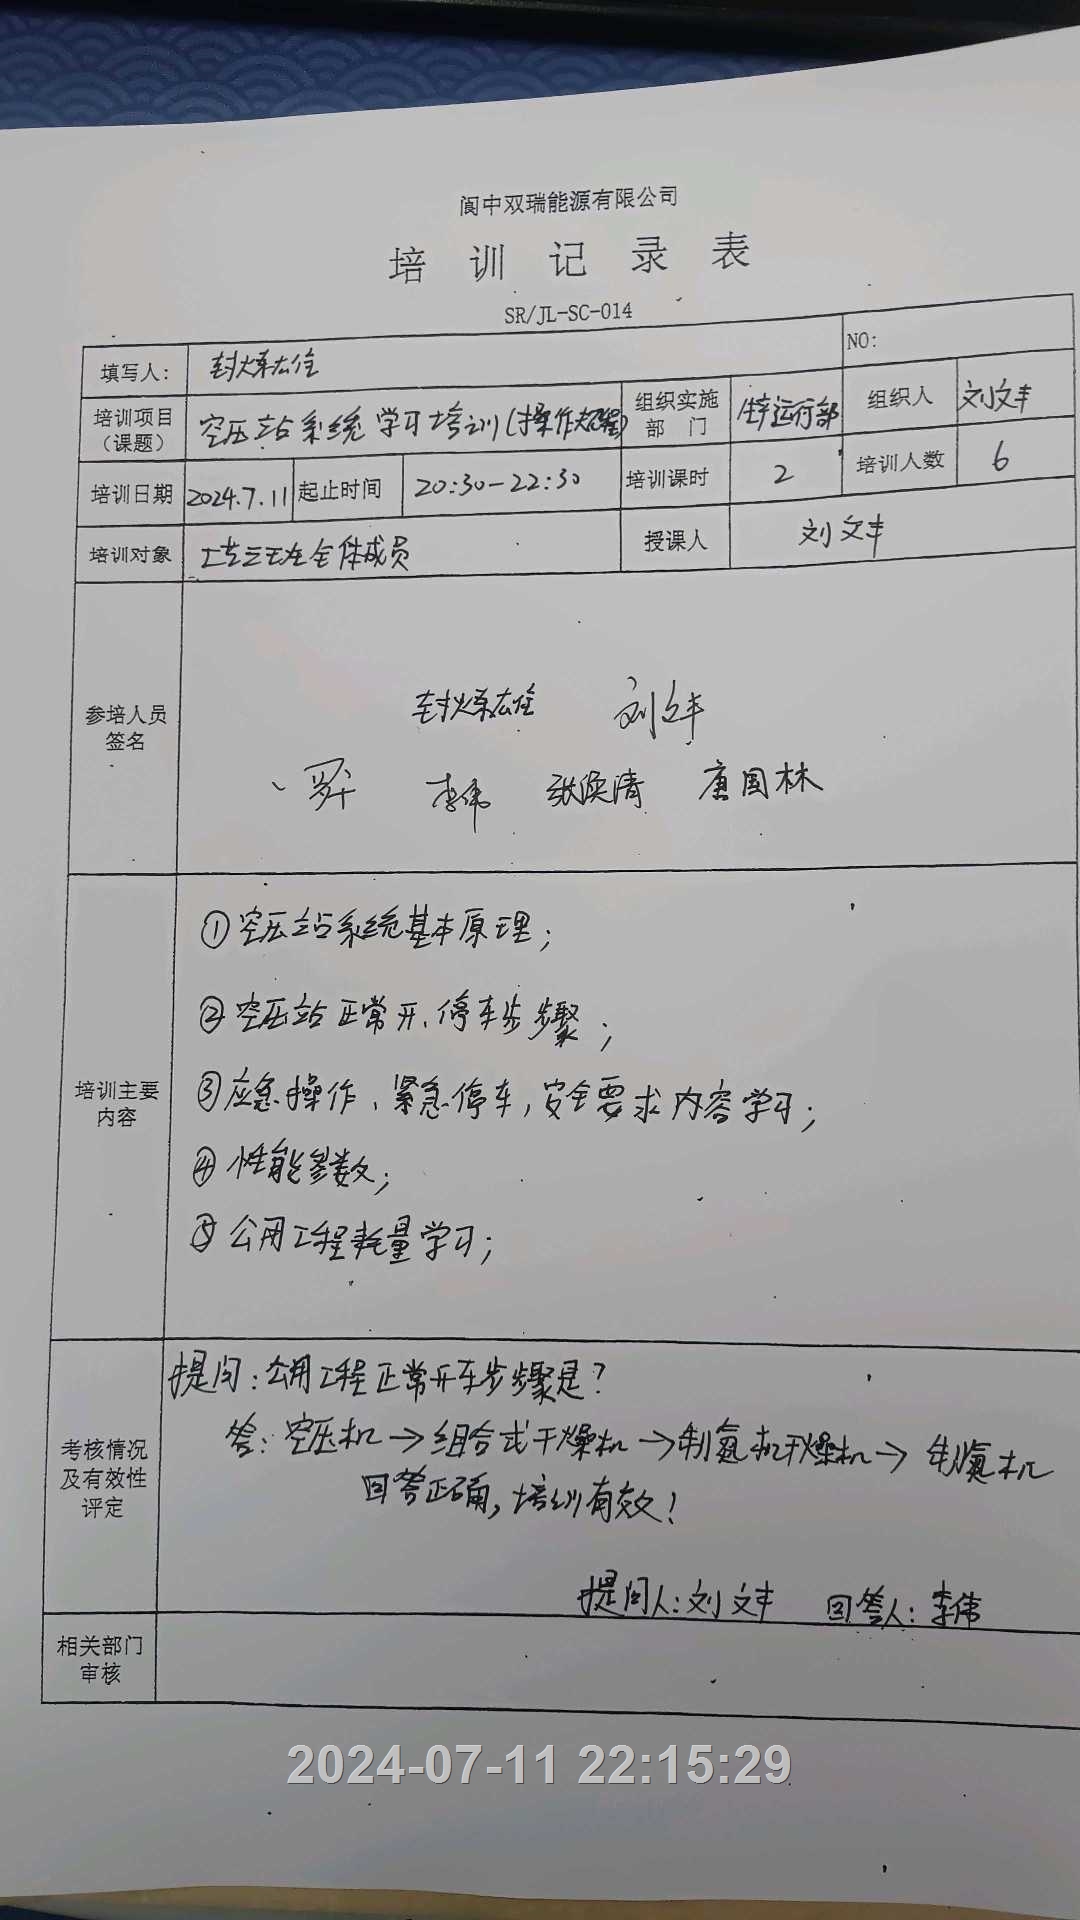 阆中双瑞能源有限公司
培训记录表
SR/JL-SC-014
填写人: NO:
培训项目(课题) 空压站系统学习培训(操作规程) 组织实施部门 生产运行部 组织人 刘文丰
培训日期 2024.7.11 起止时间 20:30-22:30 培训课时 2 培训人数 6
培训对象 全体成员 授课人 刘文丰
参培人员签名
刘文丰
李伟 张焕清 唐国林
培训主要内容
①空压站系统基本原理;
②空压站正常开、停车步骤;
③应急操作、紧急停车,安全要求内容学习;
④性能参数;
⑤公用工程耗量学习;
考核情况及有效性评定
提问:公用工程正常开车步骤是?
答:空压机→组合式干燥机→制氮机干燥机→制氮机
回答正确,培训有效!
提问人:刘文丰 回答人:李伟
相关部门审核
2024-07-11 22:15:29